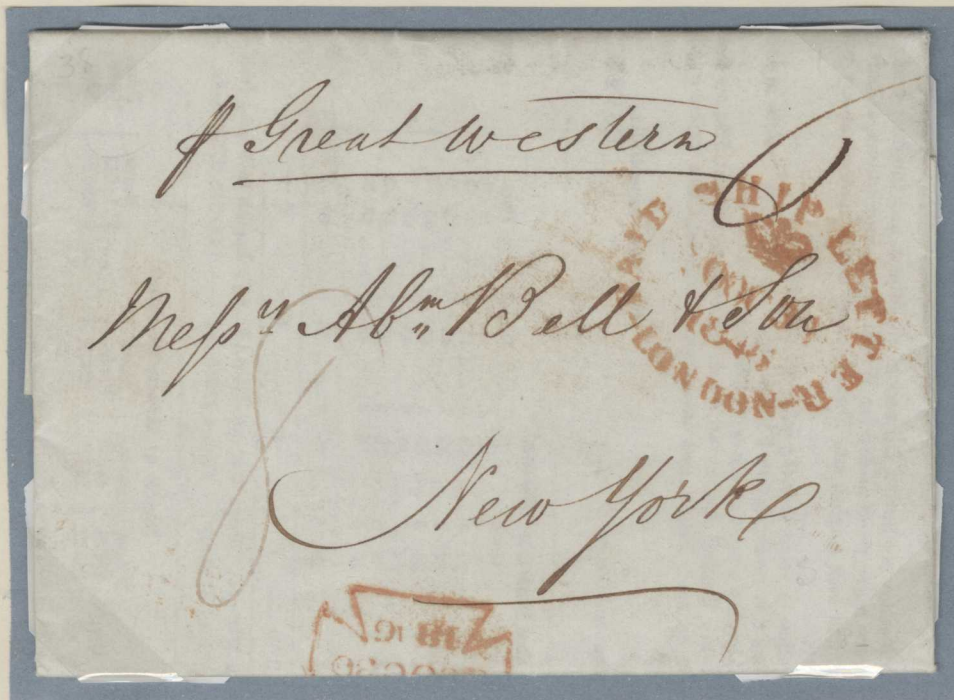 ℘ Great Western
6
PAID SHIP LETTER-LONDON
Messrs Abm Bell & Son
8
New York